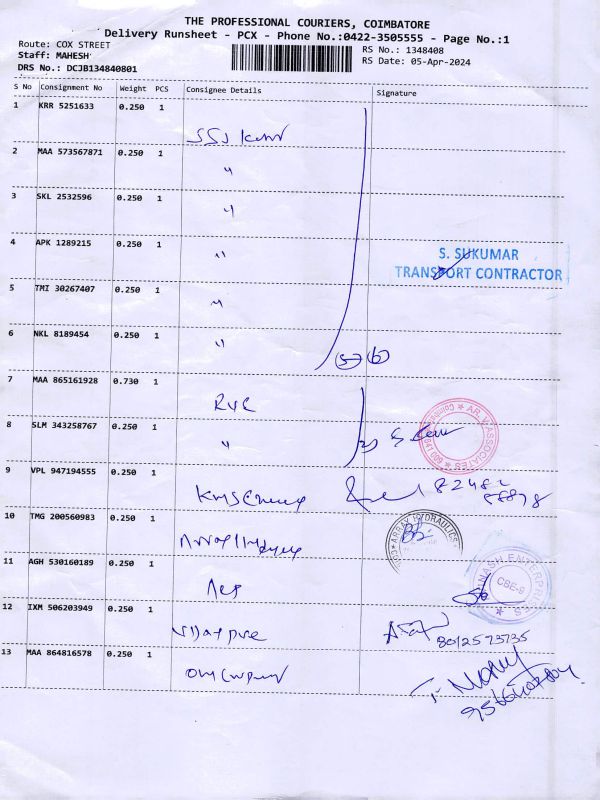 THE PROFESSIONAL COURIERS, COIMBATORE
Delivery Runsheet - PCX - Phone No.:0422-3505555 - Page No.:1
Route: COX STREET
RS No.: 1348408
Staff: MAHESH
RS Date: 05-Apr-2024
DRS No.: DCJB134840801
S No Consignment No Weight PCS Consignee Details Signature
1 KRR 5251633 0.250 1
2 MAA 573567871 0.250 1
"
3 SKL 2532596 0.250 1
"
4 APK 1289215 0.250 1
"
S. SUKUMAR
TRANSPORT CONTRACTOR
5 TMI 30267407 0.250 1
"
6 NKL 8189454 0.250 1
"
7 MAA 865161928 0.730 1
8 SLM 343258767 0.250 1
"
AR. ASSOCIATES
9 VPL 947194555 0.250 1
10 TMG 200560983 0.250 1
ARRAY HYDRAULICS
11 AGH 530160189 0.250 1
ENTERPRISES
CBE-9
12 IXM 506203949 0.250 1
8012573735
13 MAA 864816578 0.250 1